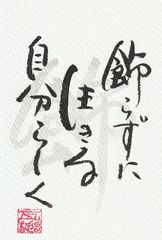 飾らずに
生きる
自分らしく